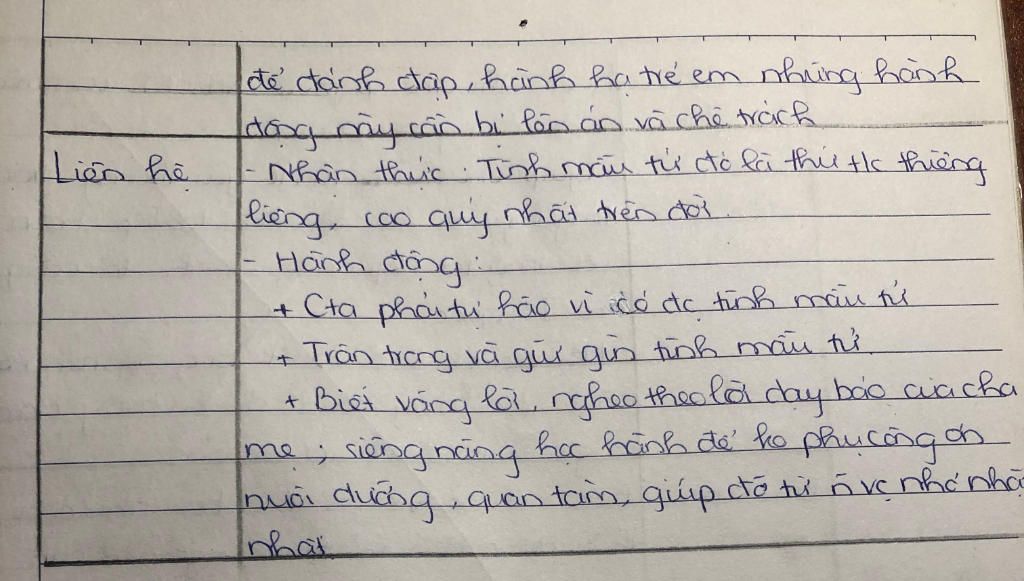 để đánh đập, hành hạ trẻ em những hành
động này cần bị lên án và chê trách
Liên hệ - Nhận thức: Tình mẫu tử đó là thứ t/c thiêng
liêng, cao quý nhất trên đời.
- Hành động:
+ Cta phải tự hào vì có đc tình mẫu tử
+ Trân trọng và giữ gìn tình mẫu tử.
+ Biết vâng lời, ngheo theo lời dạy bảo của cha
mẹ; siêng năng học hành để ko phụ công ơn
nuôi dưỡng, quan tâm, giúp đỡ từ n~ vc nhỏ nhỏ
nhất